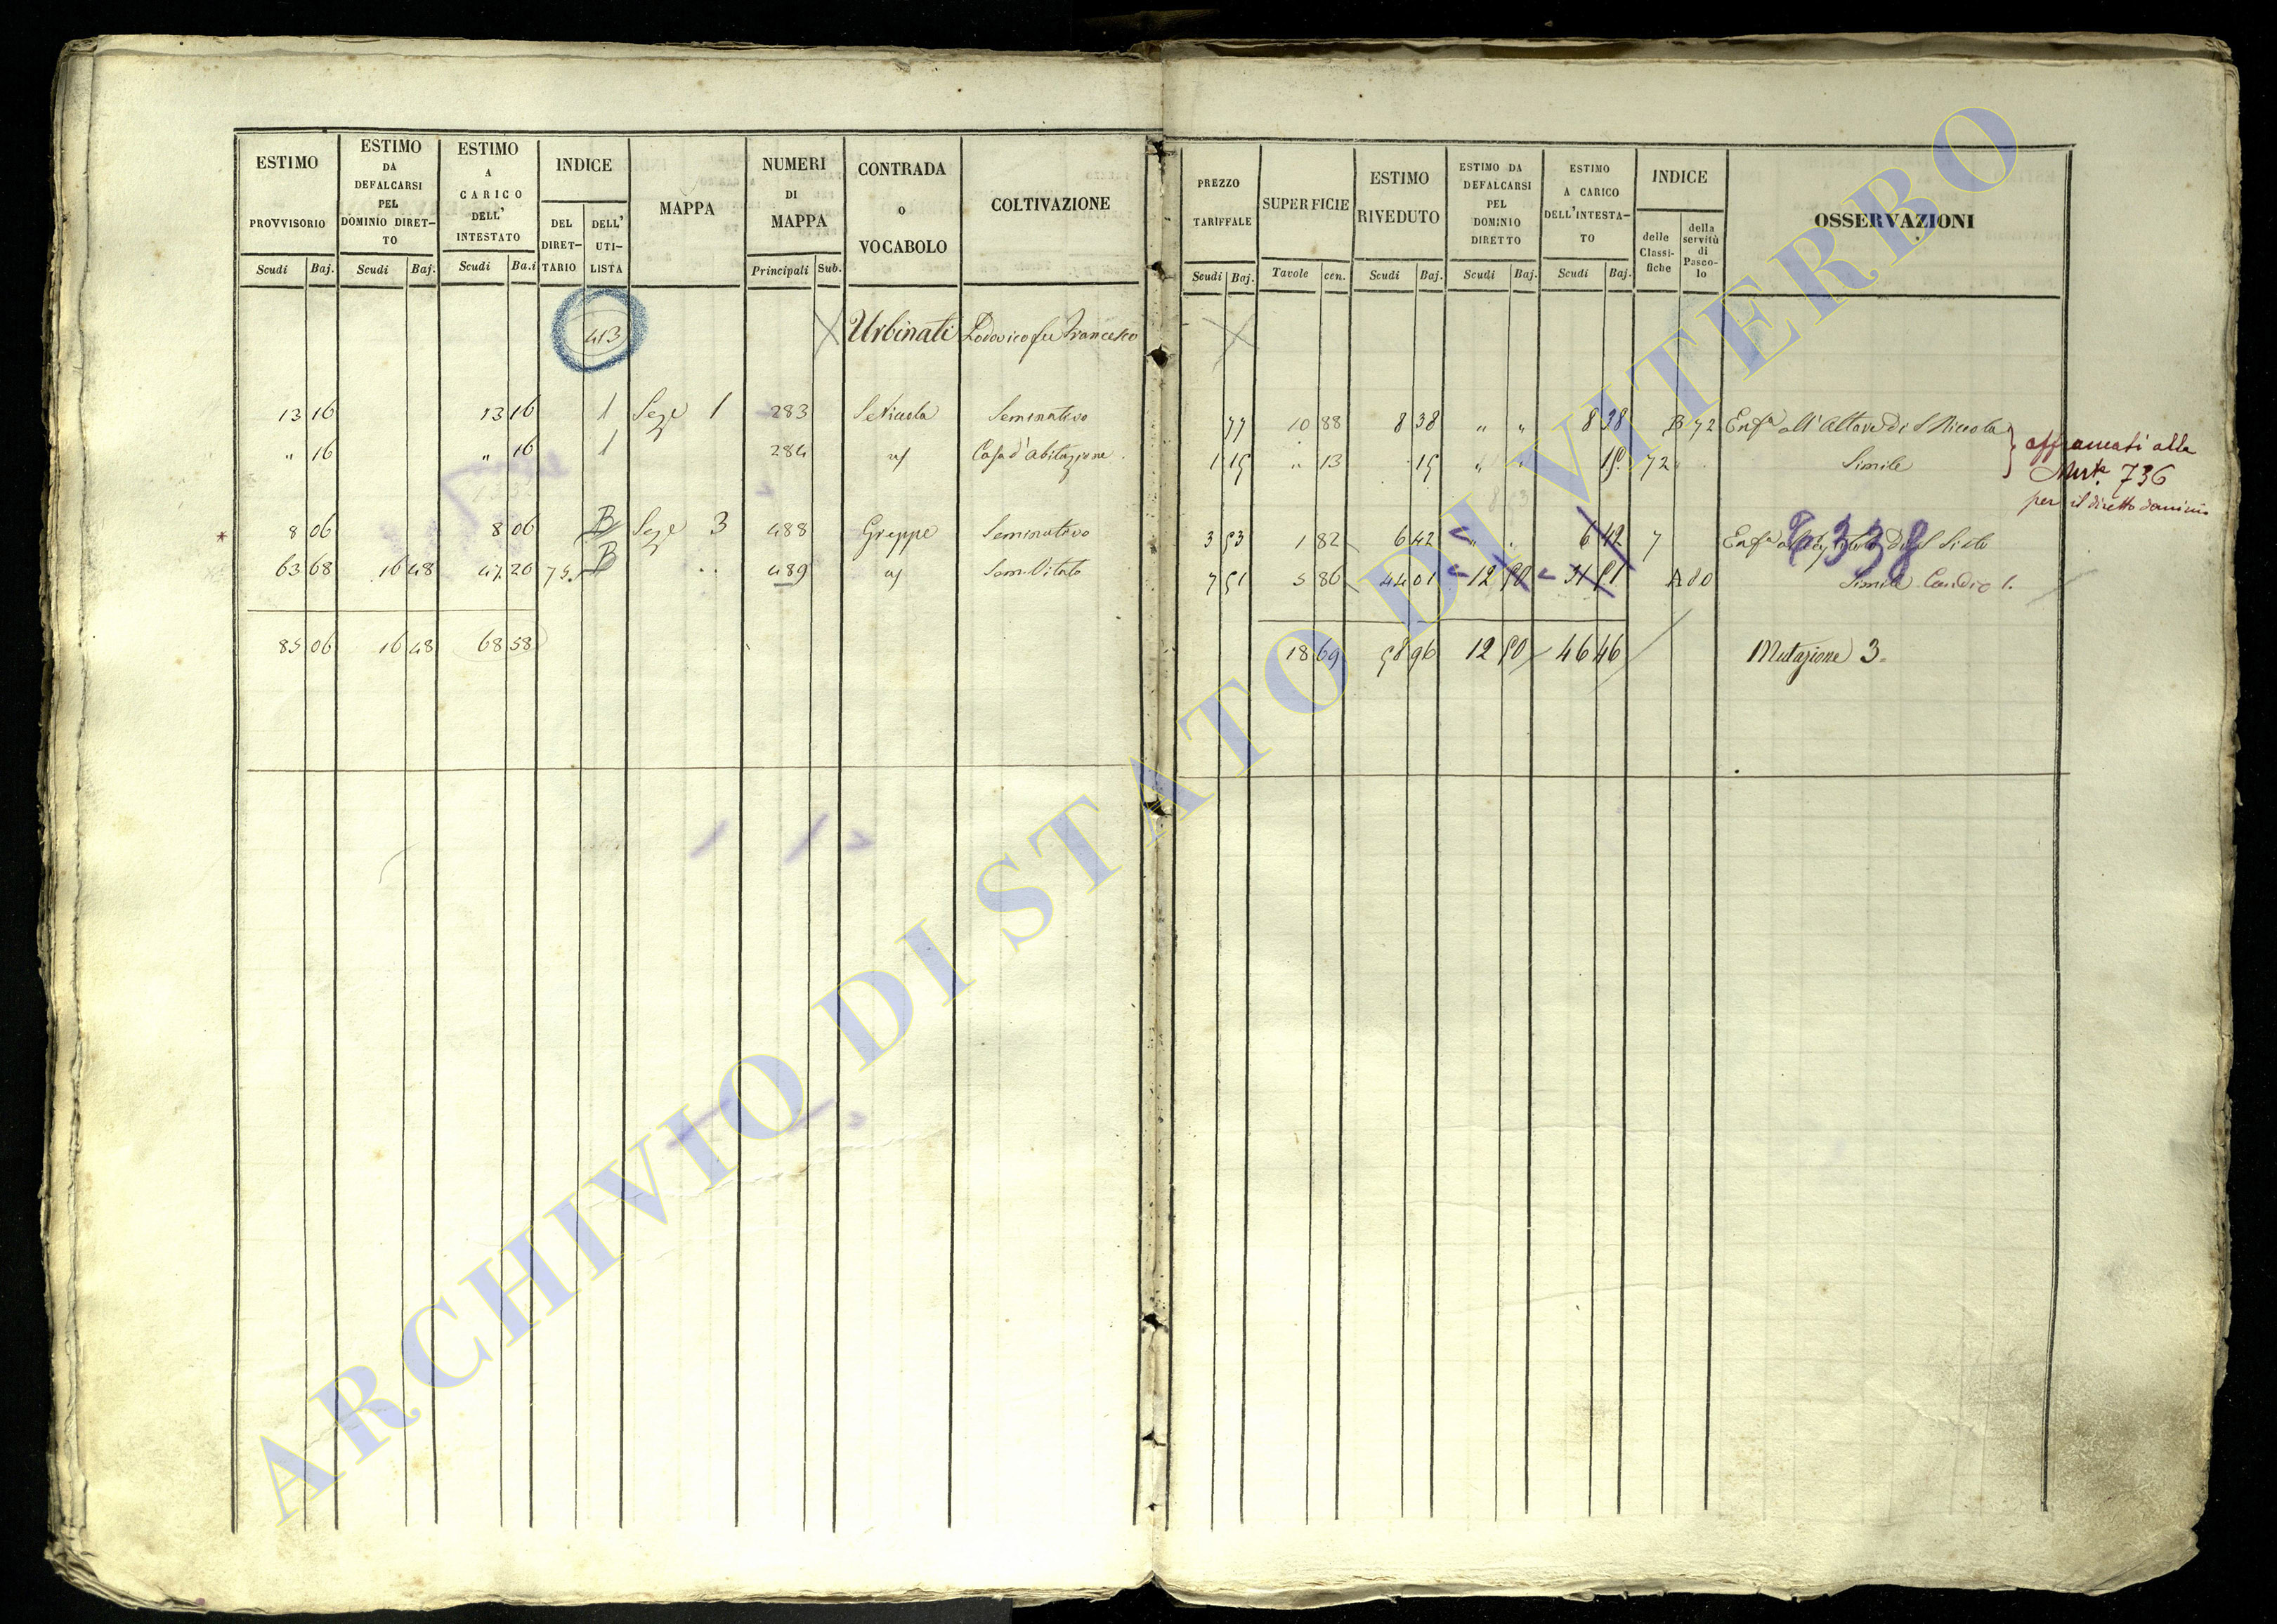 ESTIMO PROVVISORIO
ESTIMO DA DEFALCARSI PEL DOMINIO DIRET-TO
ESTIMO A CARICO DELL' INTESTATO
INDICE
DEL DIRET-TARIO
DELL' UTI-LISTA
MAPPA
NUMERI DI MAPPA
CONTRADA o VOCABOLO
COLTIVAZIONE
Scudi Baj. Scudi Baj. Scudi Ba.i Principali Sub.
413 Urbinati Lodovico fu Francesco
13 16 13 16 1 Seze 1 283 S Nicola Seminativo
" 16 " 16 1 284 Casa d'abitazione
8 06 8 06 B Seze 3 488 Greppe Seminativo
63 68 16 48 47 20 75 B 489 Sem. Vitato
85 06 16 48 68 58
PREZZO TARIFFALE
SUPERFICIE
ESTIMO RIVEDUTO
ESTIMO DA DEFALCARSI PEL DOMINIO DIRETTO
ESTIMO A CARICO DELL'INTESTA-TO
INDICE
delle Classi-fiche
della servitù di Pasco-lo
OSSERVAZIONI
Scudi Baj. Tavole cen. Scudi Baj. Scudi Baj. Scudi Baj.
77 10 88 8 38 " " 8 38 B 72 Enf.a all'Altare di S Nicola
1 15 " 13 15 " " 15 72 Simile
affrancati alla
736
per il diretto dominio
3 53 1 82 6 42 " " 6 42 7 Enf.a S Sisto
338
7 51 5 86 44 01 12 50 31 51 A 80 Simile
18 69 58 96 12 50 46 46 Mutazione 3.
ARCHIVIO DI STATO DI VITERBO